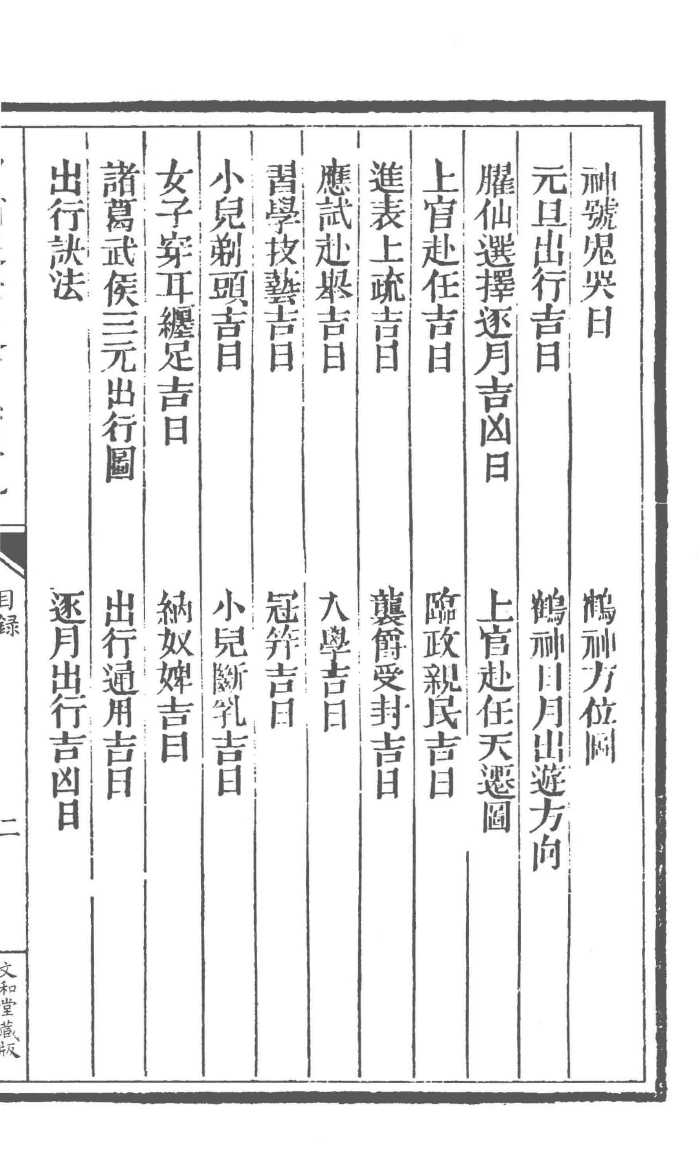 神號鬼哭日　鶴神方位圖
元旦出行吉日　鶴神日月出遊方向
臞仙選擇逐月吉凶日　上官赴任天遷圖
上官赴任吉日　臨政親民吉日
進表上疏吉日　襲爵受封吉日
應試赴舉吉日　入學吉日
習學技藝吉日　冠笄吉日
小兒剃頭吉日　小兒斷乳吉日
女子穿耳纏足吉日　納奴婢吉日
諸葛武侯三元出行圖　出行通用吉日
出行訣法　逐月出行吉凶日
目録　二　文和堂藏版